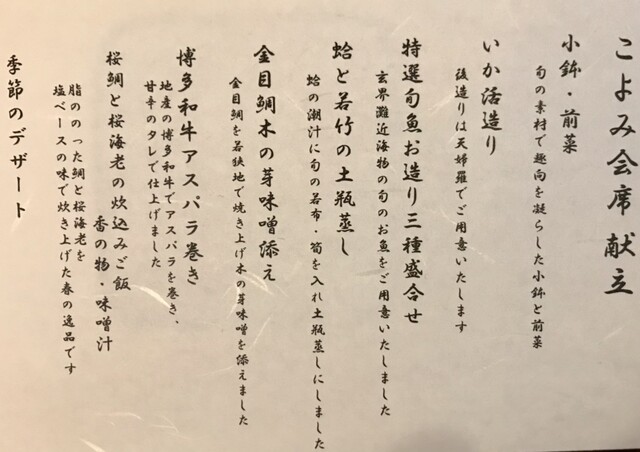 こよみ会席 献立
小鉢・前菜
旬の素材で趣向を凝らした小鉢と前菜
いか活造り
後造りは天婦羅でご用意いたします
特選旬魚お造り三種盛合せ
玄界灘近海物の旬のお魚をご用意いたしました
蛤と若竹の土瓶蒸し
蛤の潮汁に旬の若布・筍を入れ土瓶蒸しにしました
金目鯛木の芽味噌添え
金目鯛を若狭地で焼き上げ木の芽味噌を添えました
博多和牛アスパラ巻き
地産の博多和牛でアスパラを巻き、
甘辛のタレで仕上げました
桜鯛と桜海老の炊込みご飯
香の物・味噌汁
脂ののった鯛と桜海老を
塩ベースの味で炊き上げた春の逸品です
季節のデザート